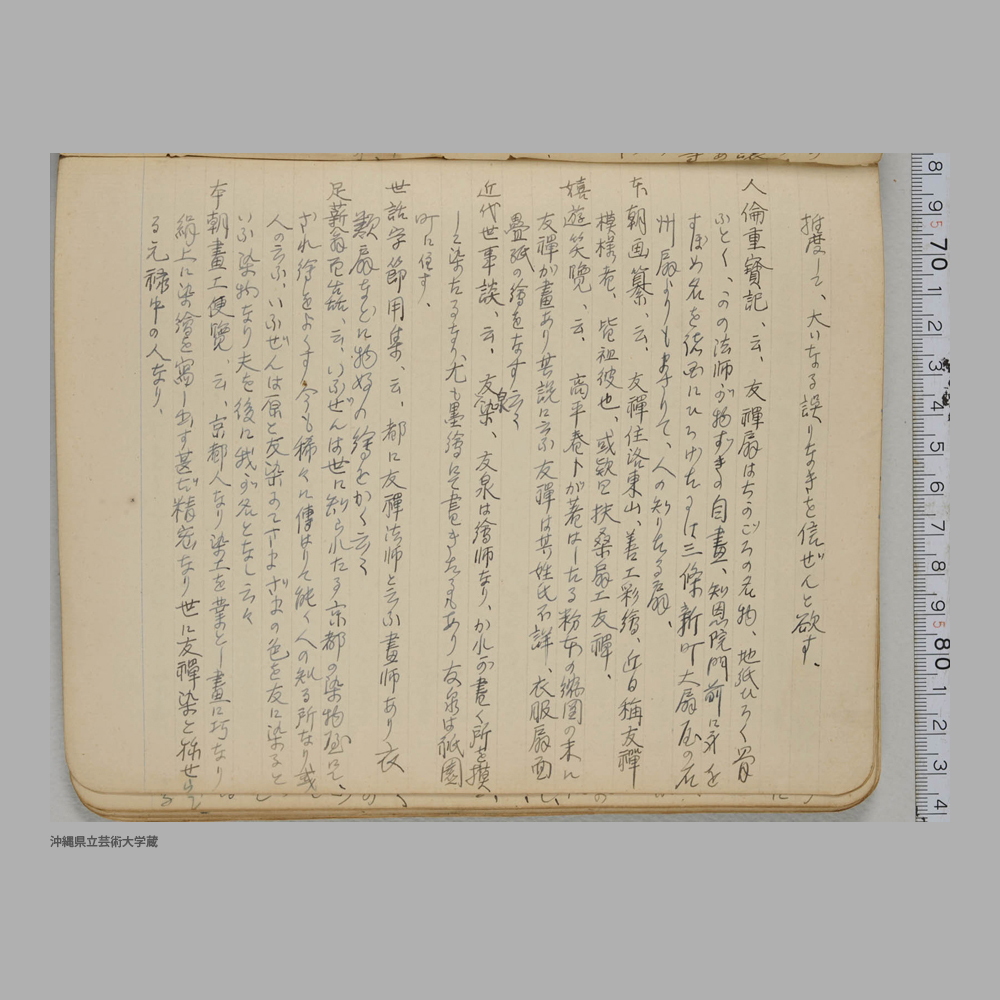 推度して、大いなる誤りなきを信ぜんと欲す、
人倫重寶記、云、友禪扇はちかごろの名物、地紙ひろく骨
ふとく、この法師が物ずきの自畫、知恩院門前に身を
すぼめ名を諸国にひろげたるは三條新町大扇屋の名
州扇よりもまさりて、人の知りたる扇、
本朝画纂、云、友禪住洛東山、善工彩繪、近日稱友禪
模様者、皆祖彼也、或款曰扶桑扇工友禪、
嬉遊笑覽、云、高平春卜が著はしたる粉本の縮圖の末に
友禪が畫あり其説に云ふ友禪は其姓氏不詳、衣服扇面
疊紙の繪をなす云々
近代世事談、云、友染、友泉は繪師なり、かれが畫く所を摸
して染たるなり、尤も墨繪にて畫きたるもあり友泉は祇園
町に住す、
世話字節用集、云、都に友禪法師と云ふ畫師あり衣
類扇などに物好の繪をかく云々
足薪翁記、云、いふぜんは世に知られたる京都の染物屋にて、
され繪をよくす今も稀々に傳はりて能く人の知る所なり或
人の云ふ、いふぜんは原と友染にてさまざまの色を友に染ると
いふ染物なり夫を後に我が名となし云々
本朝畫工便覽、云、京都人なり染工を業とし畫に巧なり
絹上に染繪を寫し出す甚だ精密なり世に友禪染と稱せらる
る元祿中の人なり、
沖縄県立芸術大学蔵